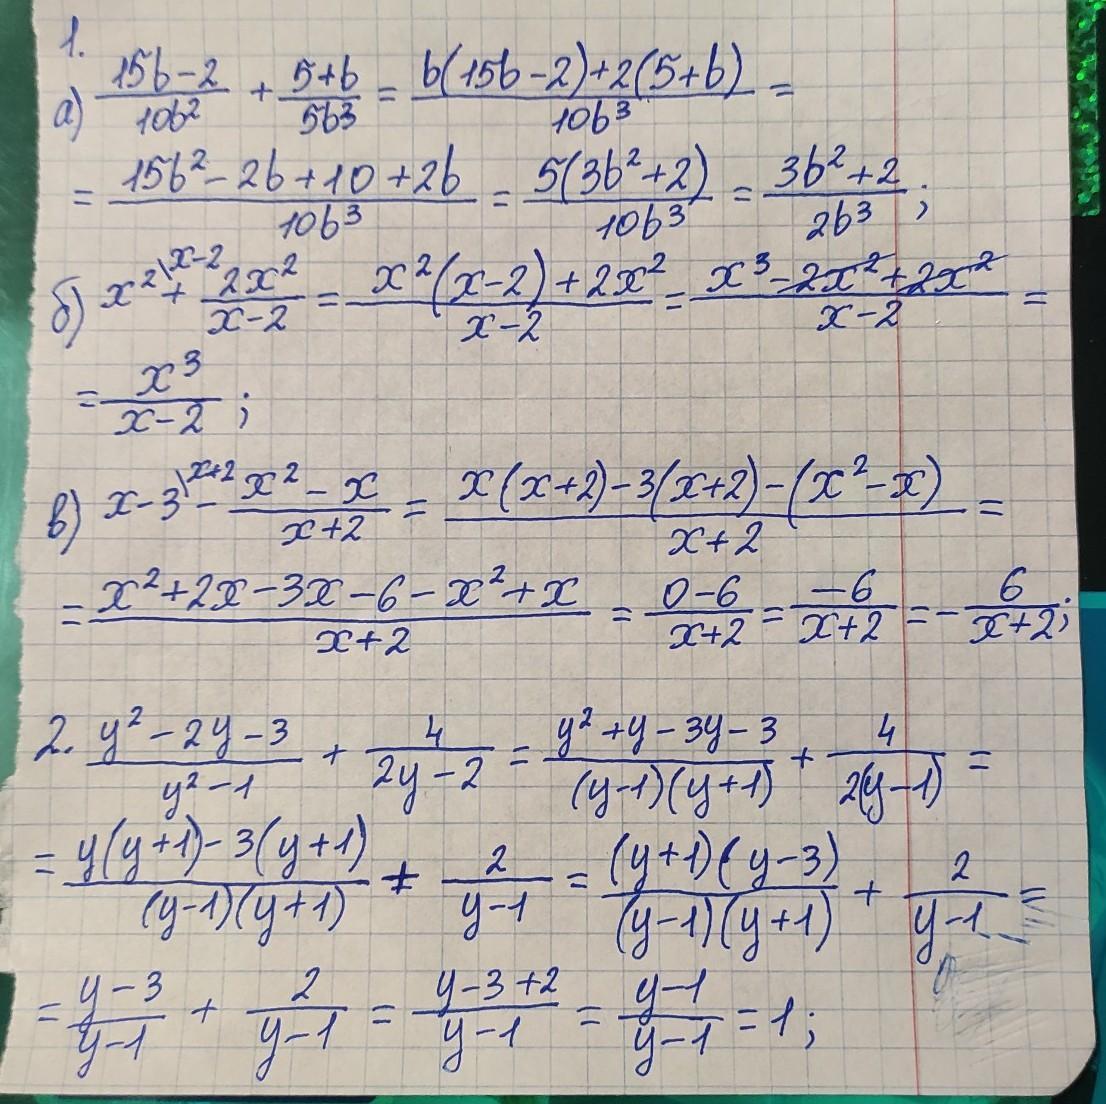 1.
а) (15b-2)/(10b²) + (5+b)/(5b³) = (b(15b-2)+2(5+b))/(10b³) =
= (15b²-2b+10+2b)/(10b³) = (5(3b²+2))/(10b³) = (3b²+2)/(2b³) ;
б) x² \x-2 + (2x²)/(x-2) = (x²(x-2)+2x²)/(x-2) = (x³-2x²+2x²)/(x-2) =
= x³/(x-2) ;
в) x-3 \x+2 - (x²-x)/(x+2) = (x(x+2)-3(x+2)-(x²-x))/(x+2) =
= (x²+2x-3x-6-x²+x)/(x+2) = (0-6)/(x+2) = (-6)/(x+2) = - 6/(x+2) ;
2. (y²-2y-3)/(y²-1) + 4/(2y-2) = (y²+y-3y-3)/((y-1)(y+1)) + 4/(2(y-1)) =
= (y(y+1)-3(y+1))/((y-1)(y+1)) + 2/(y-1) = ((y+1)(y-3))/((y-1)(y+1)) + 2/(y-1) =
= (y-3)/(y-1) + 2/(y-1) = (y-3+2)/(y-1) = (y-1)/(y-1) = 1 ;